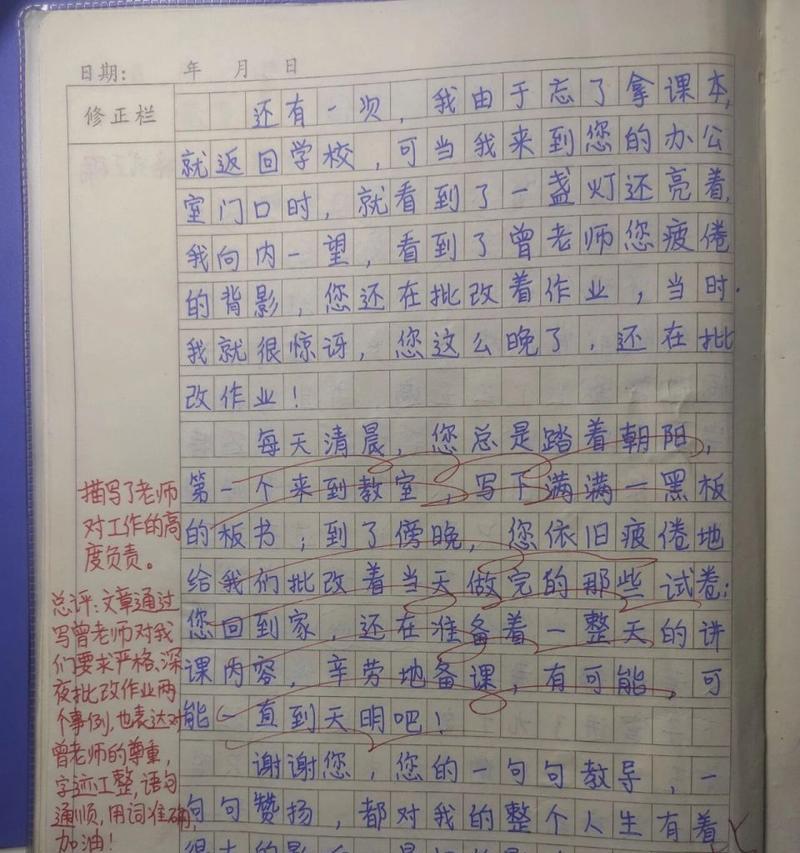 日期: 年 月 日
修正栏
还有一次，我由于忘了拿课本，
就返回学校，可当我来到您的办公
室门口时，就看到了一盏灯还亮着，
我向内一望，看到了曾老师您疲倦
的背影，您还在批改着作业，当时
我就很惊讶，您这么晚了，还在批
改作业！
每天清晨，您总是踏着朝阳，
第一个来到教室，写下满满一黑板
的板书；到了傍晚，您依旧疲倦地
给我们批改着当天做完的那些试卷；
您回到家，还在准备着一整天的讲
课内容，辛劳地备课，有可能，可
能一直到天明吧！
谢谢您，您的一句句教导，一
句句赞扬，都对我的整个人生有着
描写了老师
对工作的高
度负责。
总评：文章通过
写曾老师对我
们要求严格、深
夜批改作业两
个事例，也表达对
曾老师的尊重，
字迹工整，语句
通顺，用词准确，
加油！